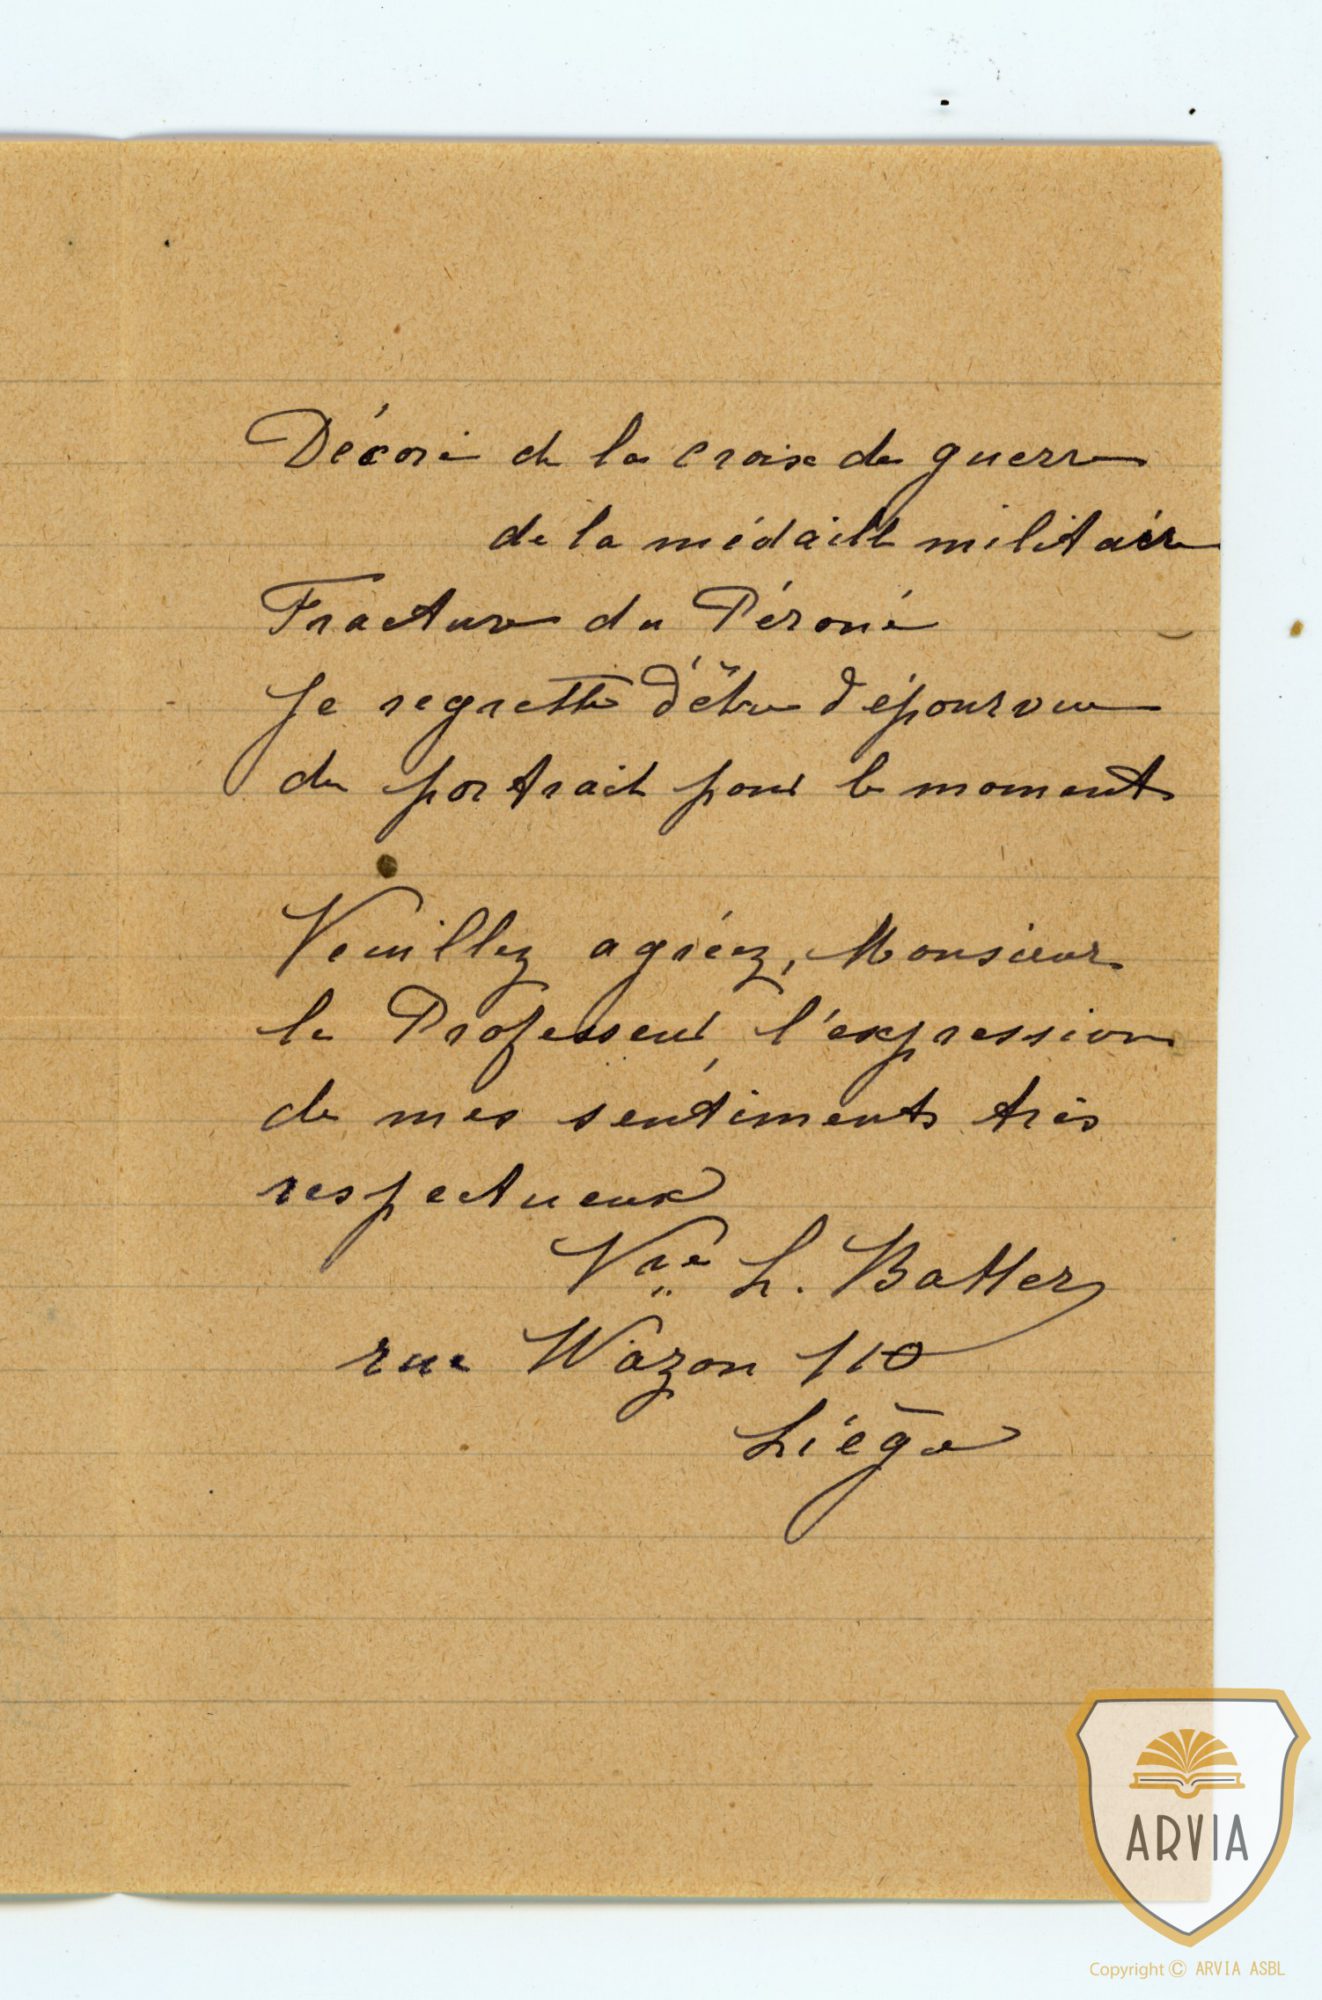 Décoré de la croix de guerre
de la médaille militaire
Fracture du Péroné
Je regrette d'être dépourvue
de portrait pour le moment
Veuillez agréez, Monsieur
le Professeur, l'expression
de mes sentiments très
respectueux
Vve L. Batter
rue Wazon 110
Liége
ARVIA
Copyright © ARVIA ASBL